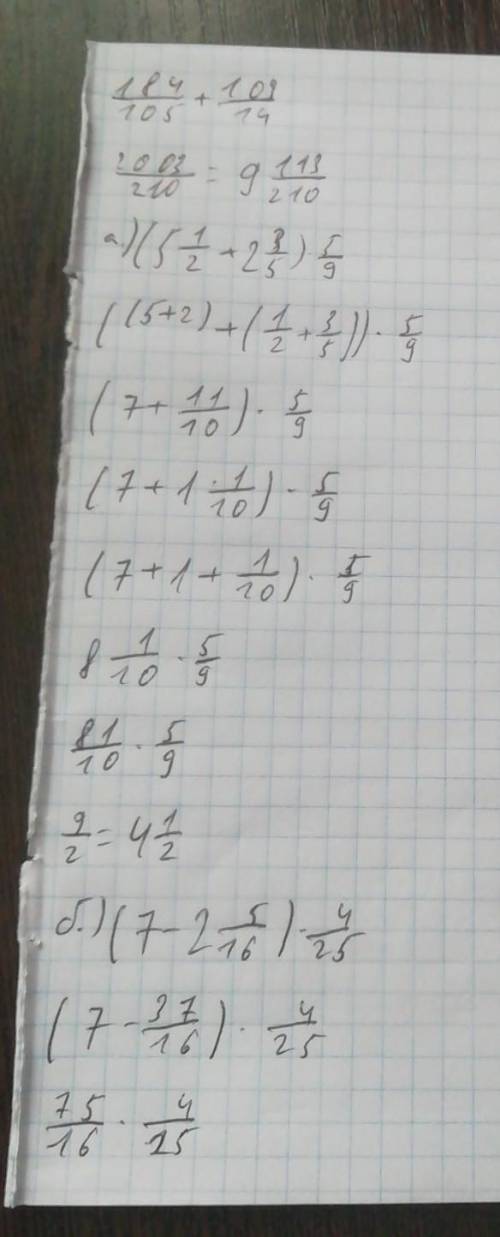 184/105 + 109/14
2003/210 = 9 113/210
а.) (5 1/2 + 2 3/5) · 5/9
((5+2) + (1/2 + 3/5)) · 5/9
(7 + 11/10) · 5/9
(7 + 1 1/10) · 5/9
(7 + 1 + 1/10) · 5/9
8 1/10 · 5/9
81/10 · 5/9
9/2 = 4 1/2
б.) (7 - 2 5/16) · 4/25
(7 - 37/16) · 4/25
75/16 · 4/25